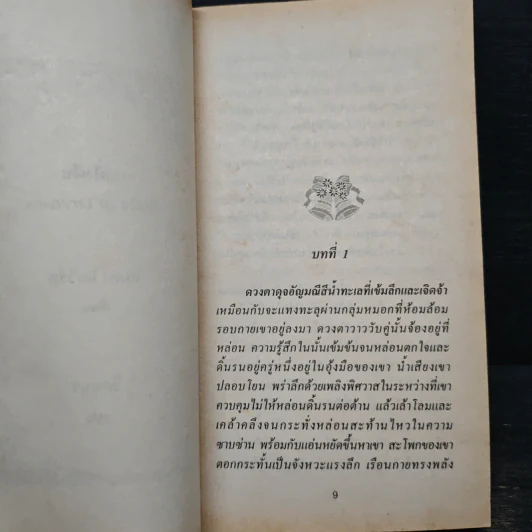 บทที่ 1
ดวงตาดุจอัญมณีสีน้ำทะเลที่เข้มลึกและเจิดจ้า
เหมือนกับจะแทงทะลุผ่านกลุ่มหมอกที่ห้อมล้อม
รอบกายเขาอยู่ลงมา ดวงตาวาววับคู่นั้นจ้องอยู่ที่
หล่อน ความรู้สึกในนั้นเข้มข้นจนหล่อนตกใจและ
ดิ้นรนอยู่ครู่หนึ่งอยู่ในอุ้งมือของเขา น้ำเสียงเขา
ปลอบโยน พร่าลึกด้วยเพลิงพิศวาสในระหว่างที่เขา
ควบคุมไม่ให้หล่อนดิ้นรนต่อต้าน แล้วเล้าโลมและ
เคล้าคลึงจนกระทั่งหล่อนสะท้านไหวในความ
ซาบซ่าน พร้อมกับแอ่นหยัดขึ้นหาเขา สะโพกของเขา
ตอกกระทั้นเป็นจังหวะแรงลึก เรือนกายทรงพลัง
9